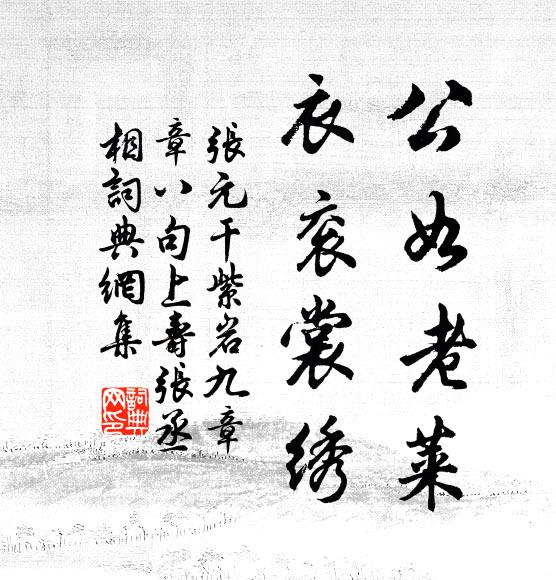 公如老莱
衣衮裳绣
張元干紫岩九章
章八句上壽張丞
相詞典網集
詞典
网印